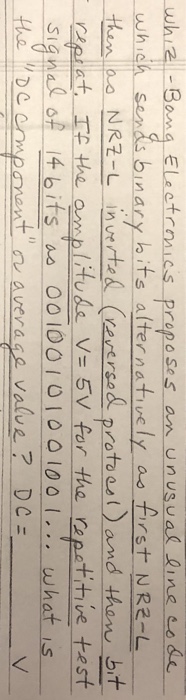 Whiz-Bang Electronics proposes an unusual line code
which sends binary bits alternatively as first NRZ-L
then as NRZ-L inverted (reversed protocol) and then bit
repeat. If the amplitude V = 5V for the repetitive test
signal of 14 bits as 00100101001001... what is
the "DC component" or average value? DC = ____ V